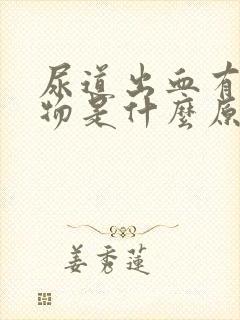 尿道出血有
物是什麼原
姜秀蓮